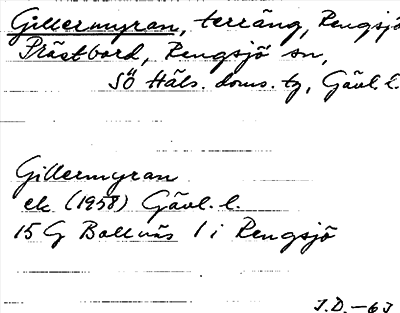 Gillermyran, terräng, Rengsjö
Prästbord, Rengsjö sn,
SÖ Häls. doms. tg, Gävl. l.
Gillermyran
ek (1958) Gävl. l.
15 G Bollnäs 1 i Rengsjö
J.D.-63